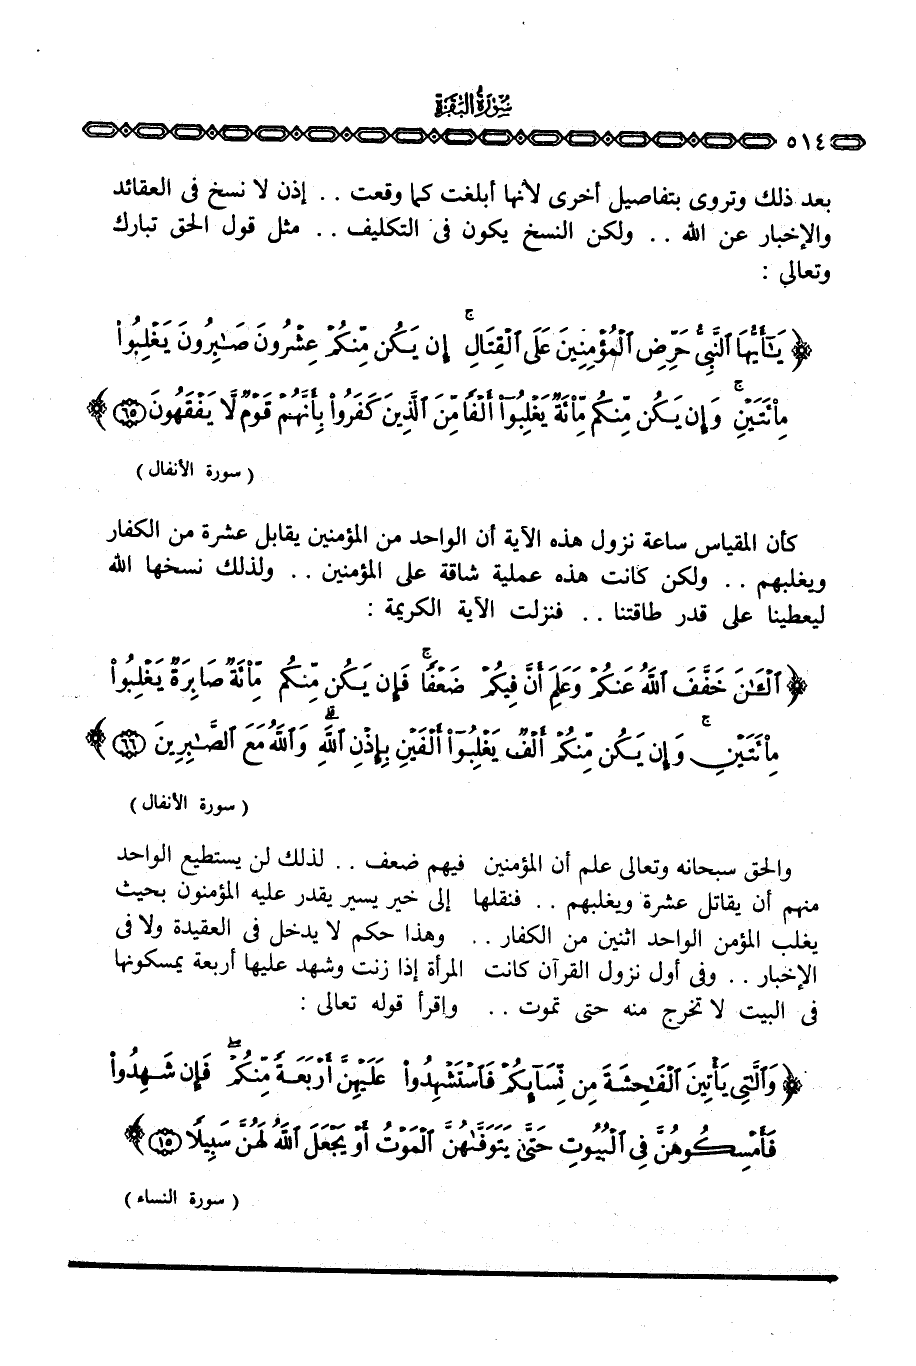 سورة البقرة
٥١٤
بعد ذلك وتروى بتفاصيل أخرى لأنها أبلغت كما وقعت .. إذن لا نسخ فى العقائد
والإخبار عن الله .. ولكن النسخ يكون فى التكليف .. مثل قول الحق تبارك
وتعالى :
﴿ يَـٰٓأَيُّهَا ٱلنَّبِىُّ حَرِّضِ ٱلْمُؤْمِنِينَ عَلَى ٱلْقِتَالِ ۚ إِن يَكُن مِّنكُمْ عِشْرُونَ صَـٰبِرُونَ يَغْلِبُوا۟
مِا۟ئَتَيْنِ ۚ وَإِن يَكُن مِّنكُم مِّا۟ئَةٌ يَغْلِبُوٓا۟ أَلْفًا مِّنَ ٱلَّذِينَ كَفَرُوا۟ بِأَنَّهُمْ قَوْمٌ لَّا يَفْقَهُونَ ٦٥ ﴾
( سورة الأنفال )
كأن المقياس ساعة نزول هذه الآية أن الواحد من المؤمنين يقابل عشرة من الكفار
ويغلبهم .. ولكن كانت هذه عملية شاقة على المؤمنين .. ولذلك نسخها الله
ليعطينا على قدر طاقتنا .. فنزلت الآية الكريمة :
﴿ ٱلْـَٔـٰنَ خَفَّفَ ٱللَّهُ عَنكُمْ وَعَلِمَ أَنَّ فِيكُمْ ضَعْفًا ۚ فَإِن يَكُن مِّنكُم مِّا۟ئَةٌ صَابِرَةٌ يَغْلِبُوا۟
مِا۟ئَتَيْنِ ۚ وَإِن يَكُن مِّنكُمْ أَلْفٌ يَغْلِبُوٓا۟ أَلْفَيْنِ بِإِذْنِ ٱللَّهِ ۗ وَٱللَّهُ مَعَ ٱلصَّـٰبِرِينَ ٦٦ ﴾
( سورة الأنفال )
والحق سبحانه وتعالى علم أن المؤمنين فيهم ضعف .. لذلك لن يستطيع الواحد
منهم أن يقاتل عشرة ويغلبهم .. فنقلها إلى خير يسير يقدر عليه المؤمنون بحيث
يغلب المؤمن الواحد اثنين من الكفار .. وهذا حكم لا يدخل فى العقيدة ولا فى
الإخبار .. وفى أول نزول القرآن كانت المرأة إذا زنت وشهد عليها أربعة يمسكونها
فى البيت لا تخرج منه حتى تموت .. وإقرأ قوله تعالى :
﴿ وَٱلَّـٰتِى يَأْتِينَ ٱلْفَـٰحِشَةَ مِن نِّسَآئِكُمْ فَٱسْتَشْهِدُوا۟ عَلَيْهِنَّ أَرْبَعَةً مِّنكُمْ ۖ فَإِن شَهِدُوا۟
فَأَمْسِكُوهُنَّ فِى ٱلْبُيُوتِ حَتَّىٰ يَتَوَفَّىٰهُنَّ ٱلْمَوْتُ أَوْ يَجْعَلَ ٱللَّهُ لَهُنَّ سَبِيلًا ١٥ ﴾
( سورة النساء )